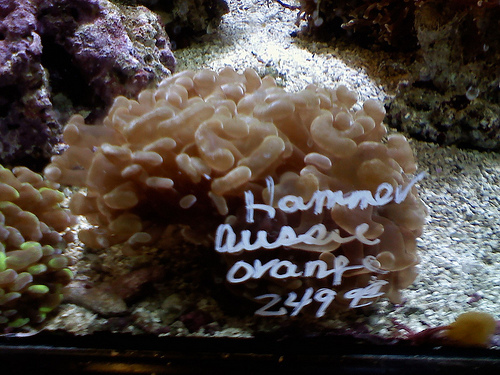 Hammer
Aussie
orange
249 99